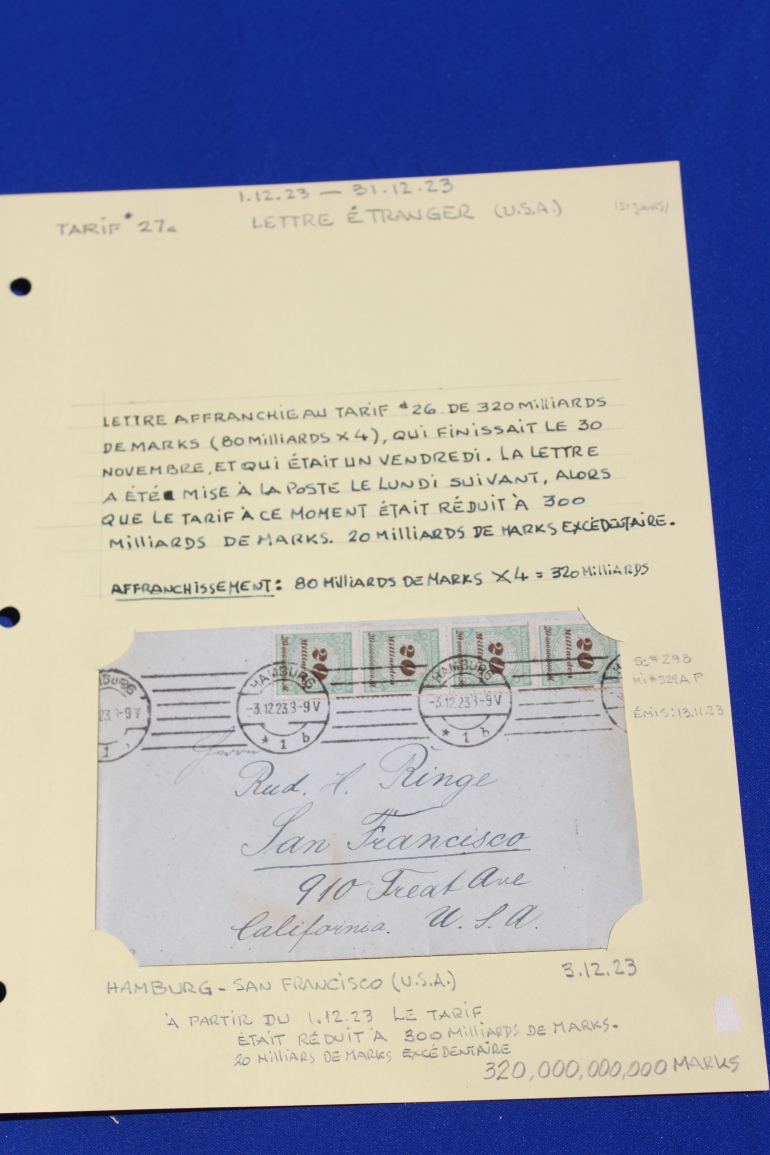 1.12.23 — 31.12.23
TARIF # 27a LETTRE ÉTRANGER (U.S.A.) (31 jours)
LETTRE AFFRANCHIE AU TARIF #26 DE 320 MILLIARDS
DE MARKS (80 MILLIARDS X 4), QUI FINISSAIT LE 30
NOVEMBRE, ET QUI ÉTAIT UN VENDREDI. LA LETTRE
A ÉTÉ MISE À LA POSTE LE LUNDI SUIVANT, ALORS
QUE LE TARIF À CE MOMENT ÉTAIT RÉDUIT À 300
MILLIARDS DE MARKS. 20 MILLIARDS DE MARKS EXCÉDENTAIRE.
AFFRANCHISSEMENT: 80 MILLIARDS DE MARKS X 4 = 320 MILLIARDS
20 Milliarden
20 Milliarden
20 Milliarden
20 Milliarden
HAMBURG
-3.12.23 8-9V
* 1 b
HAMBURG
-3.12.23 8-9V
* 1 b
Sc# 298
Mi# 329 A P
ÉMIS: 13.11.23
Herrn
Rud. H. Ringe
San Francisco
910 Treat Ave
California. U. S. A.
HAMBURG - SAN FRANCISCO (U.S.A.) 3.12.23
À PARTIR DU 1.12.23 LE TARIF
ÉTAIT RÉDUIT À 300 MILLIARDS DE MARKS.
20 MILLIARS DE MARKS EXCÉDENTAIRE
320,000,000,000 MARKS